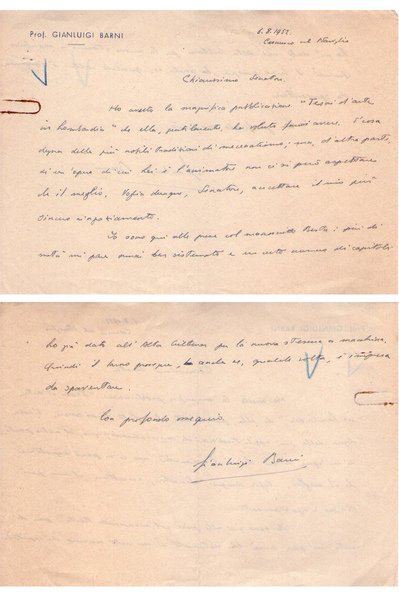 Prof. GIANLUIGI BARNI
6.8.1952.
Cernusco sul Naviglio
Chiarissimo Senatore,
Ho avuto la magnifica pubblicazione "Tesori d'arte
in Lombardia" che ella, gentilmente, ha voluto farmi avere. È cosa
degna delle più nobili tradizioni di mecenatismo; ma, d'altra parte,
di un'opera di cui Lei è l'animatore non ci si può aspettare
che il meglio. Voglia dunque, Senatore, accettare il mio più
sincero ringraziamento.
Io sono qui alle prese col manoscritto Besta: i più di
metà mi pare ormai ben sistemato e un certo numero di capitoli
ho già dato all' Alba per la nuova stesura a macchina.
Quindi il lavoro prosegue, anche se, qualche volta, è
da spaventare.
Con profondo ossequio
Gianluigi Barni